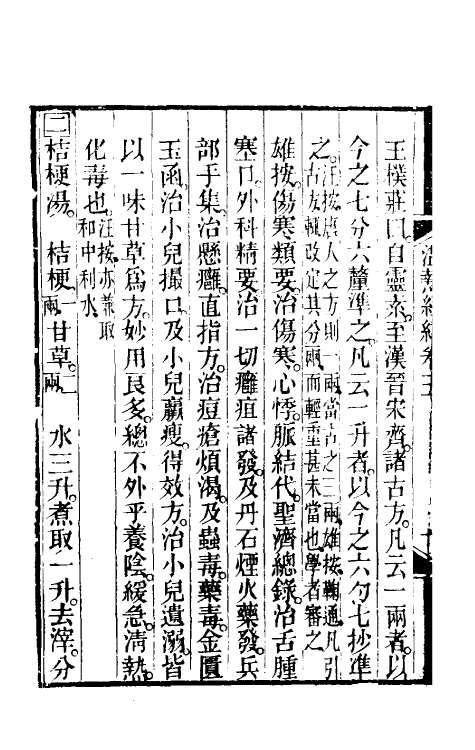 王樸莊曰自靈素至漢晉宋齊諸古方凡云一兩者以
今之七分六釐準之凡云一升者以今之六勺七抄準
之汪按唐人之方則一兩當古之三兩雄按鞠通凡引
古方輒改定其分兩而輕重甚未當也學者審之
雄按傷寒類要治傷寒心悸脈結代聖濟總錄治舌腫
塞口外科精要治一切癰疽諸發及丹石煙火藥發兵
部手集治懸癰直指方治痘瘡煩渴及蟲毒藥毒金匱
玉函治小兒撮口及小兒羸瘦得效方治小兒遺溺皆
以一味甘草爲方妙用良多總不外乎養陰緩急清熱
化毒也汪按亦兼取
和中利水
二 桔梗湯 桔梗一兩 甘草二兩 水三升煮取一升去滓分
溫熱經緯卷五